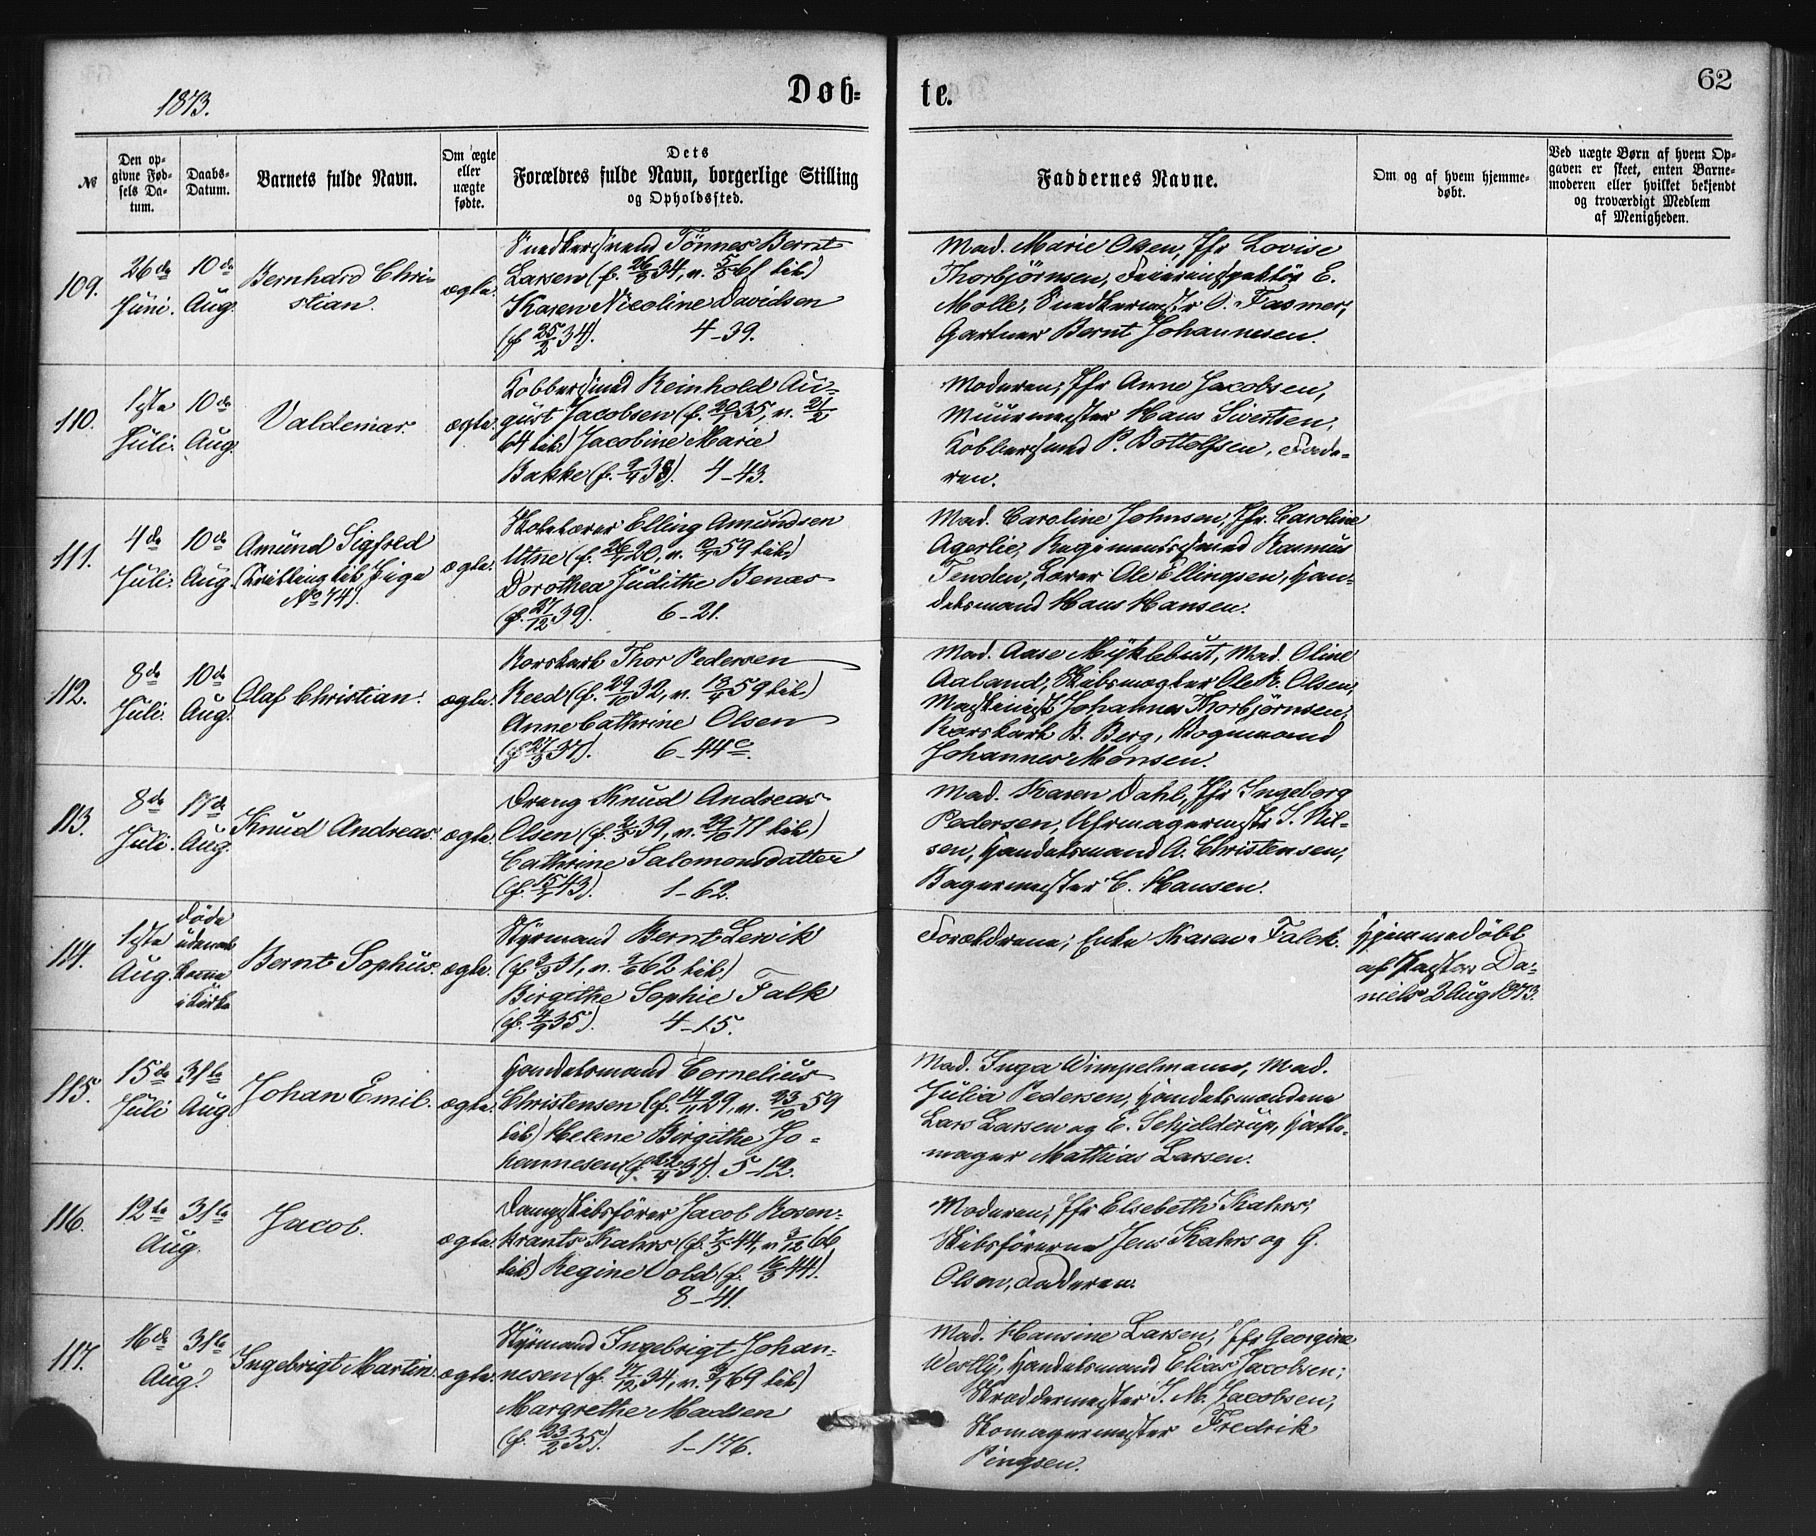 1873.
Døb-
te.
62
№
Den op-
givne Fød-
sels Da-
tum.
Daabs-
Datum.
Barnets fulde Navn.
Om ægte
eller
uægte
fødte.
Dets
Forældres fulde Navn, borgerlige Stilling
og Opholdssted.
Faddernes Navne.
Om og af hvem hjemme-
døbt.
Ved uægte Børn af hvem Op-
gaven er skeet, enten Barne-
moderen eller hvilket bekjendt
og troværdigt Medlem
af Menigheden.
109.
26de
Juni.
10de
Aug.
Bernhard Chri-
stian.
ægte.
Snedkersvend Tönnes Bernt
Larsen (f. 26/3 34, v. 5/5 61 til)
Karen Nicoline Davidsen
(f. 25/2 34). 4-39.
Mad. Marie Olsen, Jfr Lovise
Thorbjörnsen, E.
Molle, Snedkermester O. Fasmer,
Gartner Bernt Johannesen.
110.
1ste
Juli.
10de
Aug.
Valdemar.
ægte.
Kobbersmed Reinhold Au-
gust Jacobsen (f. 35, v. 21/2
64 til) Jacobine Marie
Bakke (f. 38). 4-43.
Moderen, Jfr Anne Jacobsen,
Muurmester Hans Sivertsen,
Kobbersmed P. Bottolfsen, Fade-
ren.
111.
4de
Juli.
10de
Aug.
Amünd Sigfred
(Tvilling til Pige
No 74).
ægte.
Skolelærer Elling Amundsen
Utne (f. 20, v. 59 til)
Dorothea Judithe Benæs
(f. 27/12 39). 6-21.
Mad. Caroline Johnsen, Jfr. Caroline
Agerlie, Regimentssmed Rasmus
Tenden, Lærer Ole Ellingsen, Han-
delsmand Hans Hansen.
112.
8de
Juli.
10de
Aug.
Olaf Christian.
ægte.
Korskarl Thor Pedersen
Reed (f. 29/10 32, v. 13/4 59 til)
Anne Cathrine Olsen
(f. 27/3 37). 6-44c.
Mad. Aase Myklebust, Mad. Oline
Aaland, Skibsmægler Ole R. Olsen,
Maskinist Johannes Thorbjörnsen,
Korskarl B. Berg, Vognmand
Johannes Monsen.
113.
8de
Juli.
17de
Aug.
Knud Andreas.
ægte.
Dreng Knud Andreas
Olsen (f. 39, v. 29/10 71 til)
Cathrine Salomonsdatter
(f. 15/1 43). 1-62.
Mad. Karen Dahl, Jfr Ingeborg
Pedersen, Uhrmagermester I. Nil-
sen, Handelsmand A. Christensen,
Bagermester C. Hansen.
114.
1ste
Aug.
döde
uden at
komme
i Kirke
Bernt Sophus.
ægte.
Styrmand Bernt Lervik
(f. 31, v. 62 til)
Birgithe Sophie Falk
(f. 35). 4-15.
Forældrene, Enke Karen Falck.
Hjemmedöbt
af Pastor Da-
niels. 2 Aug 1873.
115.
15de
Juli
31te
Aug.
Johan Emil.
ægte.
Handelsmand Cornelius
Christensen (f. 14/11 29, v. 23/10 59
til) Helene Birgithe Jo-
hannesen (f. 22/4 37). 5-12.
Mad. Inga Wimpelmann, Mad.
Julia Pedersen, Handelsmændene
Lars Larsen og E. Schjelderup, Hatte-
mager Mathias Larsen.
116.
12te
Aug.
31te
Jacob.
ægte.
Dampskibsförer Jacob Rosen-
krants Kahrs (f. 7/5 44, v. 9/12 66
til) Regine Dold (f. 16/3 44).
8-41.
Moderen, Jfr Elsebeth Kahrs,
Skibsförerne Jens Kahrs og G.
Olsen, Faderen.
117.
16de
Aug.
31te
Ingebrigt Martin.
ægte.
Styrmand Ingebrigt Johan-
nesen (f. 17/12 34, v. 69 til)
Margrethe Madsen
(f. 23/2 35). 1-176.
Mad. Hansine Larsen, Jfr Georgine
Westly, Handelsmand Elias Jacobsen,
Skræddermester I. M. Jacobsen,
Skomagermester Fredrik